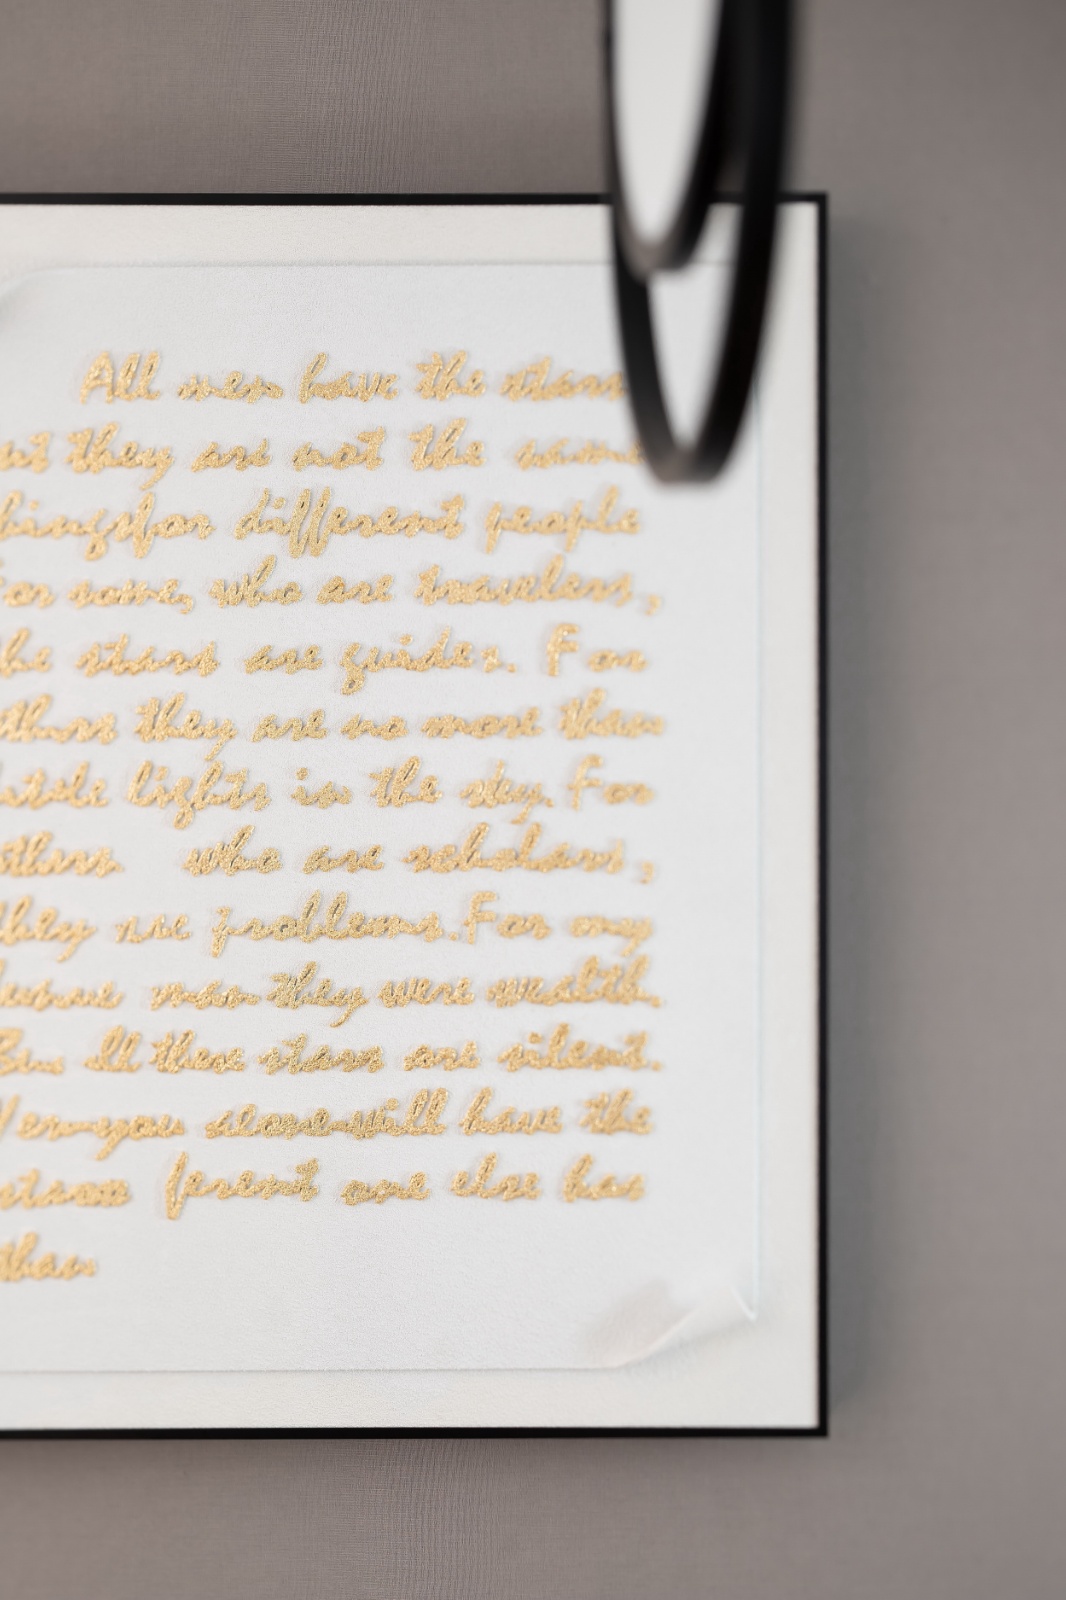 All men have the stars
ut they are not the same
hingsfor different people
For some, who are travelers,
he stars are guides. For
thers they are no more than
little lights in the sky. For
thers who are scholars,
they are problems. For my
man they were wealth.
But all these stars are silent.
Yer you alone will have the
stars one else has
them